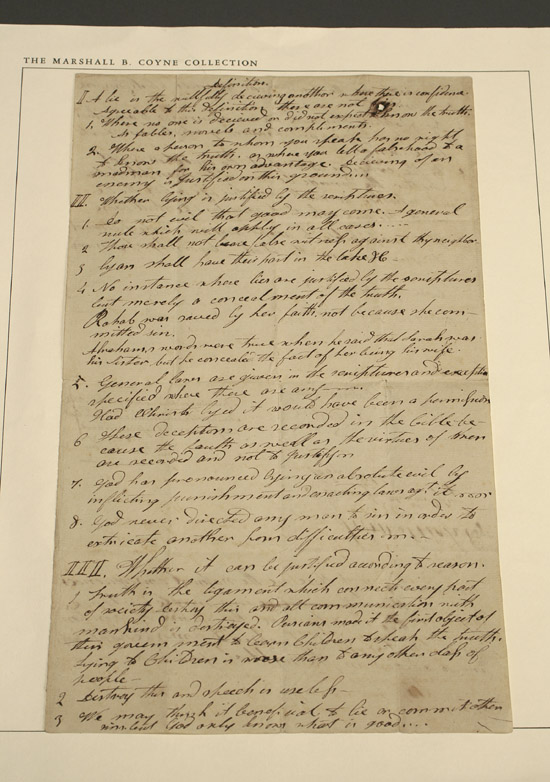 THE MARSHALL B. COYNE COLLECTION
Definition.
II A lie is the wilfully deceiving another when there is confidence
Agreeable to this definition there are not
1. Where no one is deceived or did not expect to know the truth.
As fables, novels and compliments.
2. Where a person to whom you speak has no right
to know the truth, or where you tell a falsehood to a
madman for his own advantage. Deceiving of an
enemy is justified on this ground.
II. Whether lying is justified by the scriptures.
1. Do not evil that good may come. A general
rule which will apply in all cases....
2 Thou shall not bear false witness against thy neighbor.
3 Lyars shall have their part in the lake &c
4 No instance where lies are justified by the scriptures
but merely a concealment of the truth.
Rahab was saved by her faith, not because she com-
mitted sin.
Abrahams words were true when he said that Sarah was
his sister, but he concealed the fact of her being his wife.
5. General laws are given in the scriptures and exceptions
specified where there are any
Had Christ lyed it would have been a permission
6 These deceptions are recorded in the bible be-
cause the faults as well as the virtues of men
are recorded and not to justify
7. God has pronounced lying an absolute evil by
inflicting punishment and enacting laws agt it
8. God never directed any man to sin in order to
extricate another from difficulties
III. Whether it can be justified according to reason.
1 Truth is the ligament which connects every part
of society destroy this and all communication with
mankind is destroyed. Persians made it the first object of
their government to learn children to speak the truth.
Lying to Children is worse than to any other class of
people
2 Destroy this and speech is useless
3 We may think it beneficial to lie or commit other
but God only knows what is good....